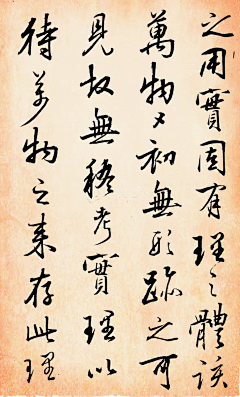 之用實固有理之體該
萬物之初無形跡之可
見故無稽考實理以
待萬物之來存此理